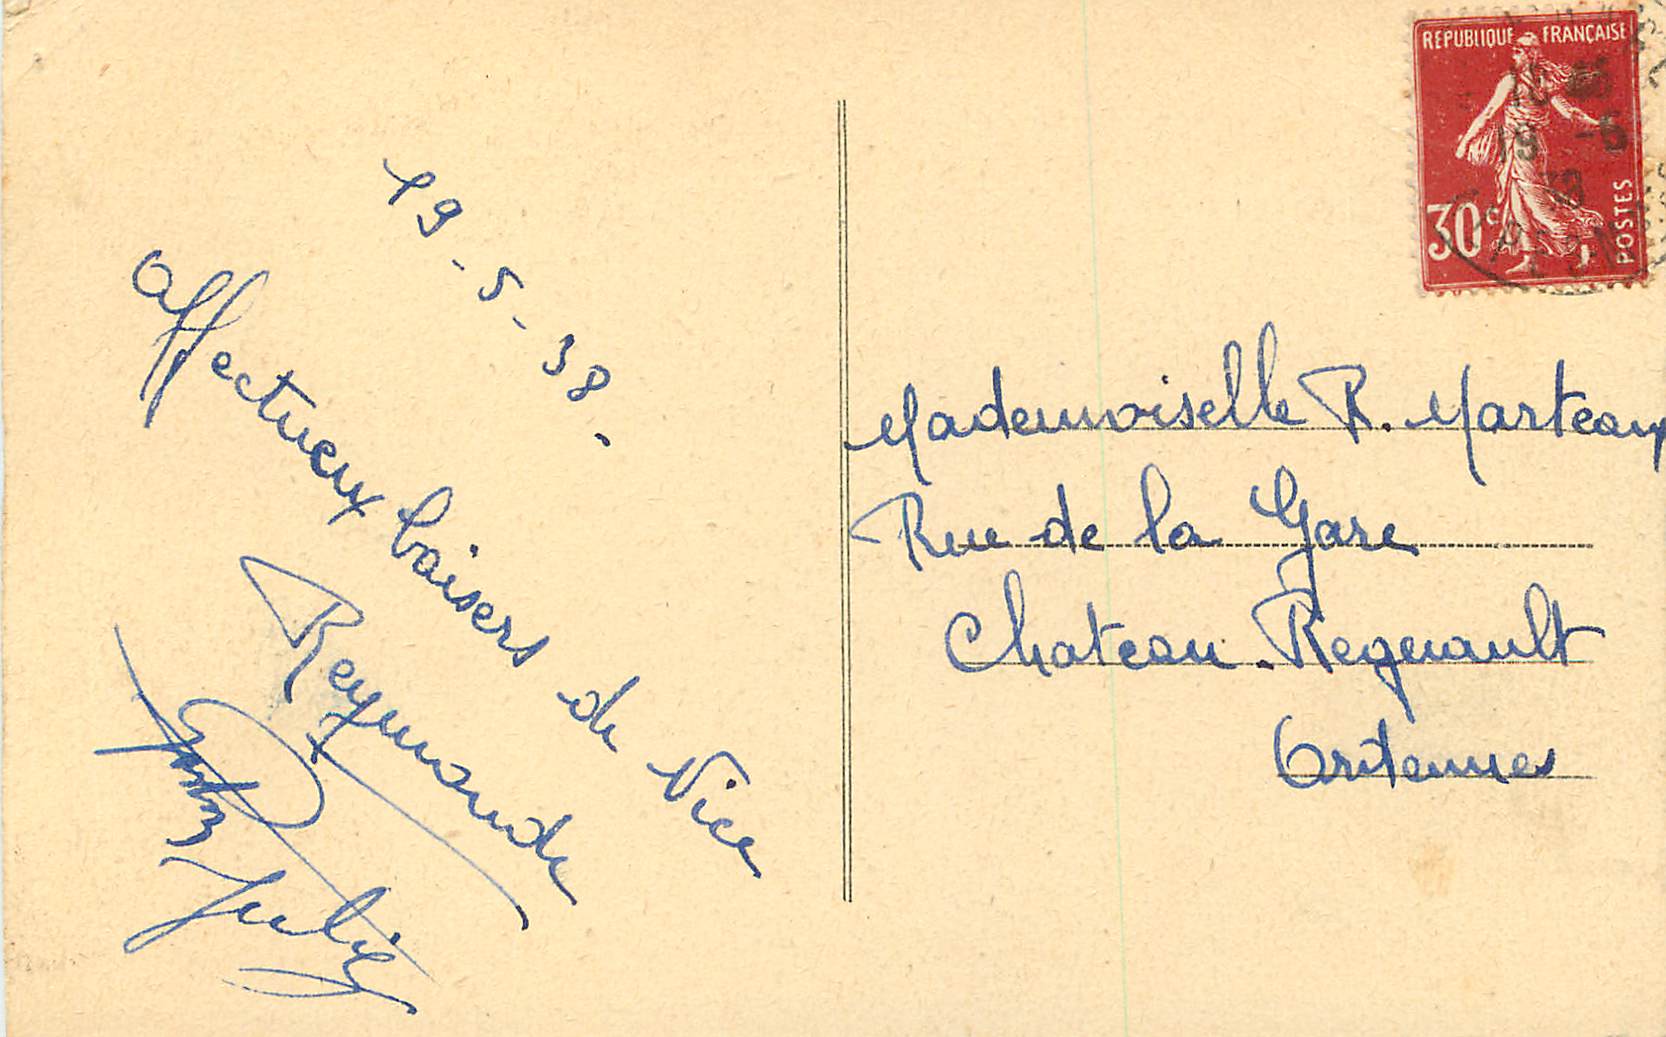 19-5-38-
Affectueux baisers de Nice
Reymonde
Julie
REPUBLIQUE FRANÇAISE
30c
POSTES
19 -5
38
Mademoiselle R. Marteaux
Rue de la Gare
Chateau-Regnault
Ardennes